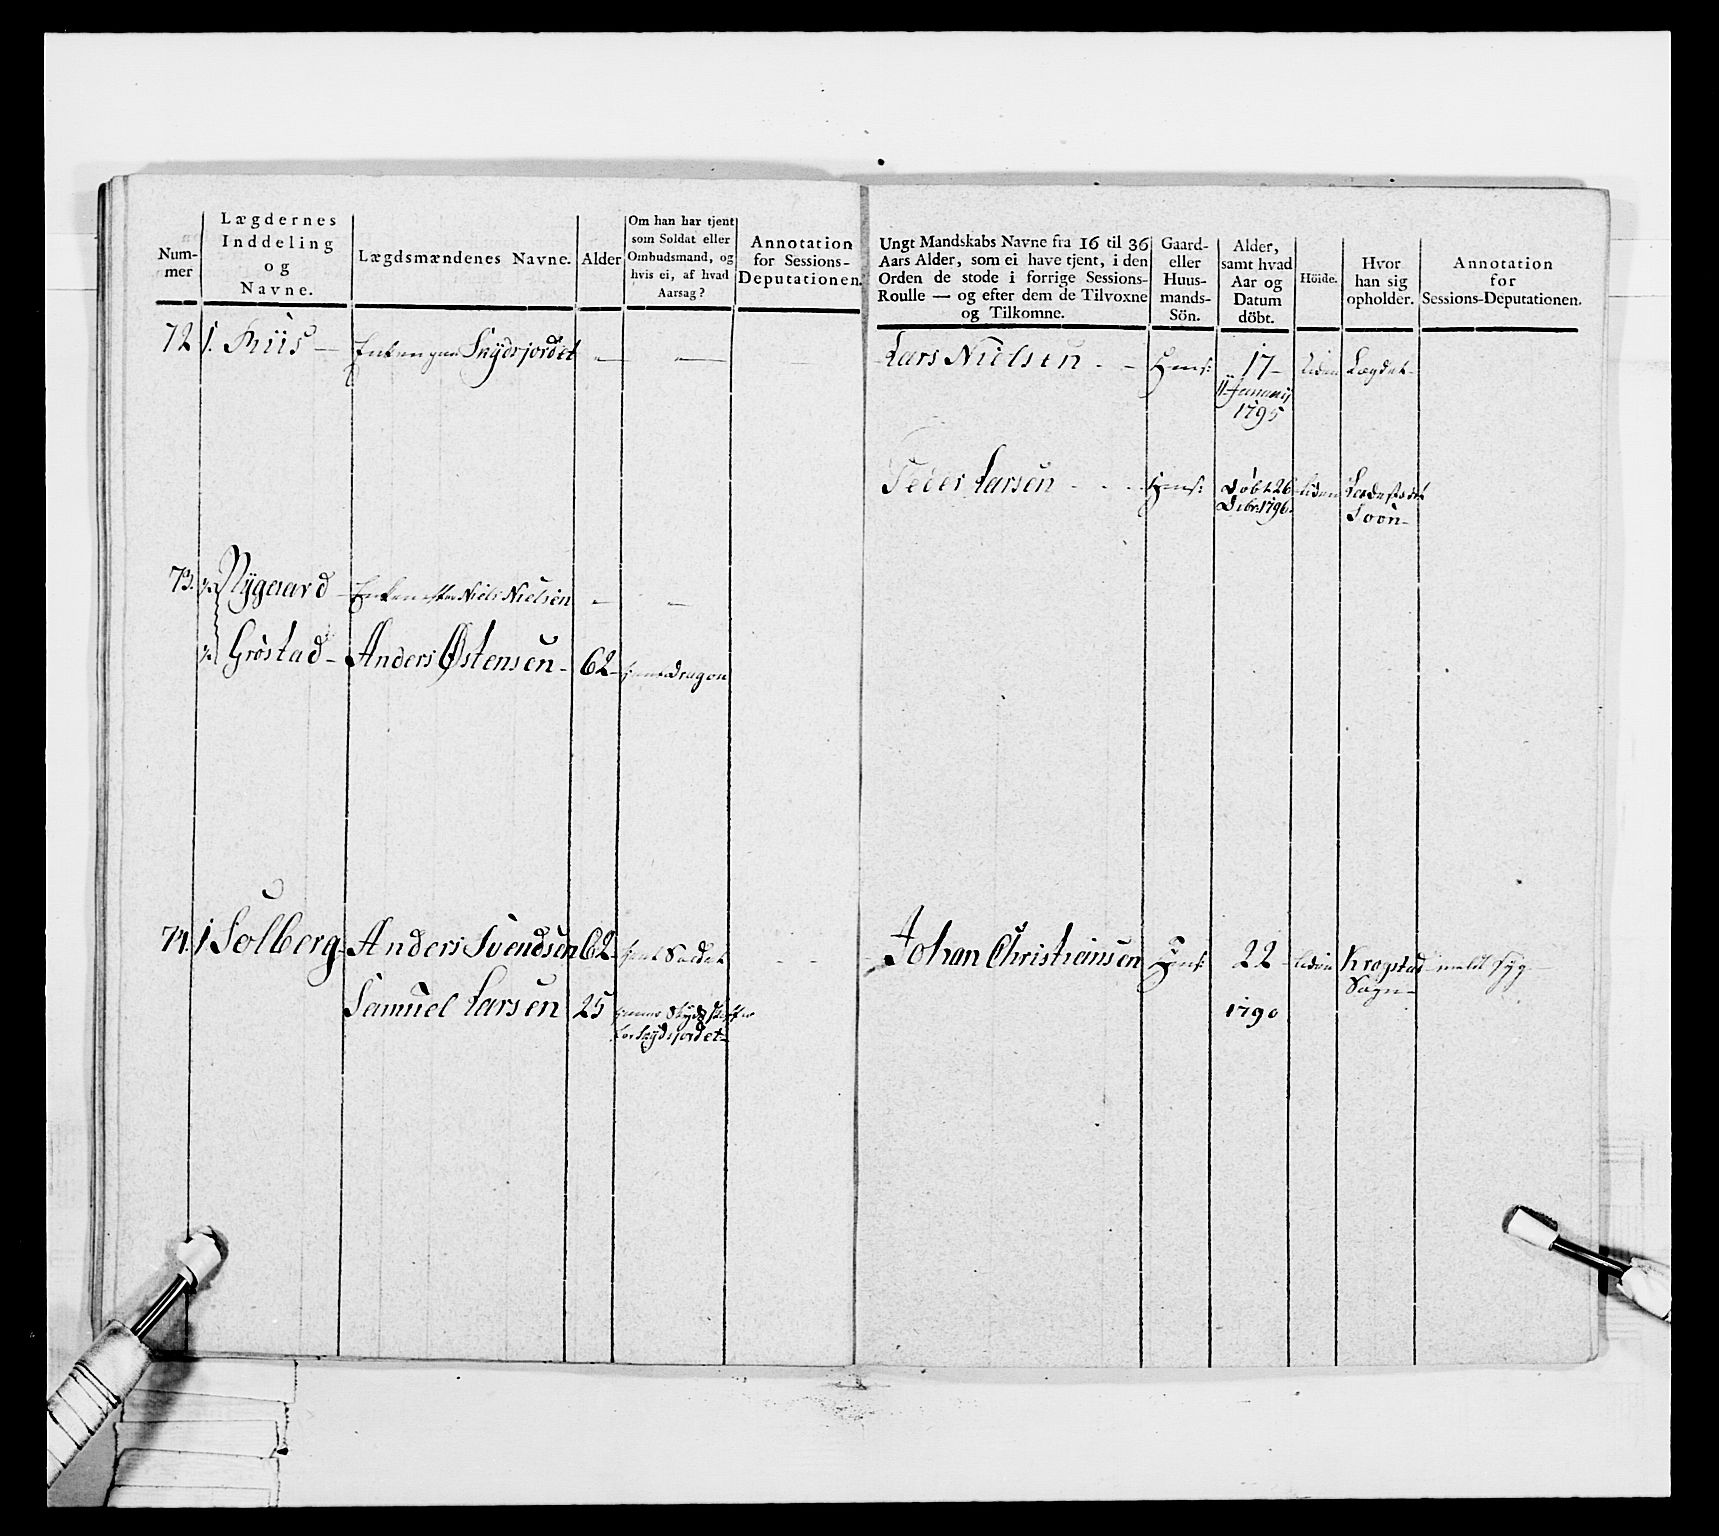 Num-
mer
Lægdernes
Inddeling
og
Navne.
Lægdsmændenes Navne.
Alder
Om han har tjent
som Soldat eller
Ombudsmand, og
hvis ei, af hvad
Aarsag?
Annotation
for Sessions-
Deputationen.
Ungt Mandskabs Navne fra 16 til 36
Aars Alder, som ei have tjent, i den
Orden de stode i forrige Sessions-
Roulle — og efter dem de Tilvoxne
og Tilkomne.
Gaard-
eller
Huus-
mands-
Sön.
Alder,
samt hvad
Aar og
Datum
döbt.
Höide.
Hvor
han sig
opholder.
Annotation
for
Sessions-Deputationen.
72 1. Riis — Enken paa Skydsjordet — —
Lars Nielsen - - 17- liden Lægdet-
11 Januarij
1795
Peder Larsen - - - Døbt 26 liden
Debr. 1796. Soon-
73. ½ Nygaard - Enken efter Niels Nielsen - -
½ Grøstad - Anders Østensen - 62- Dragon
74. 1 Solberg - Anders Svendsen 62- - -
Johan Christiansen 22 - liden Krogstad meldt syg -
Sogn-
Samuel Larsen 25
1790
for Skydsjordet-